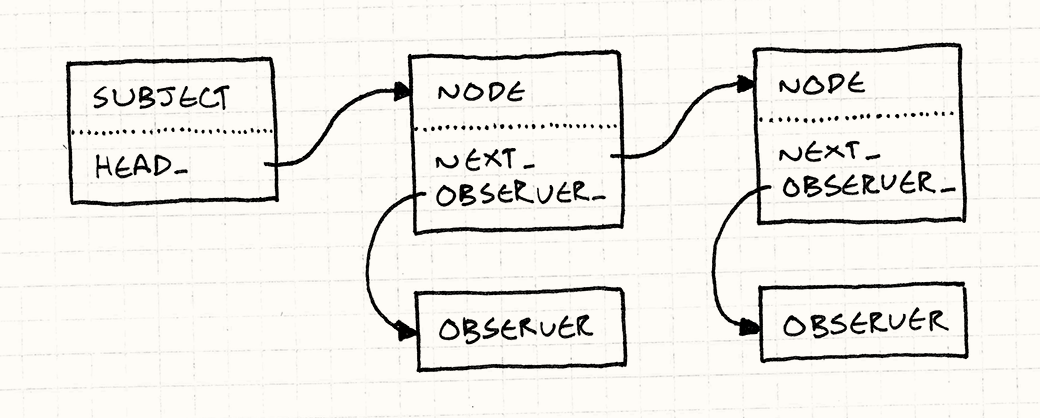 SUBJECT
HEAD_
NODE
NEXT_
OBSERVER_
OBSERVER
NODE
NEXT_
OBSERVER_
OBSERVER